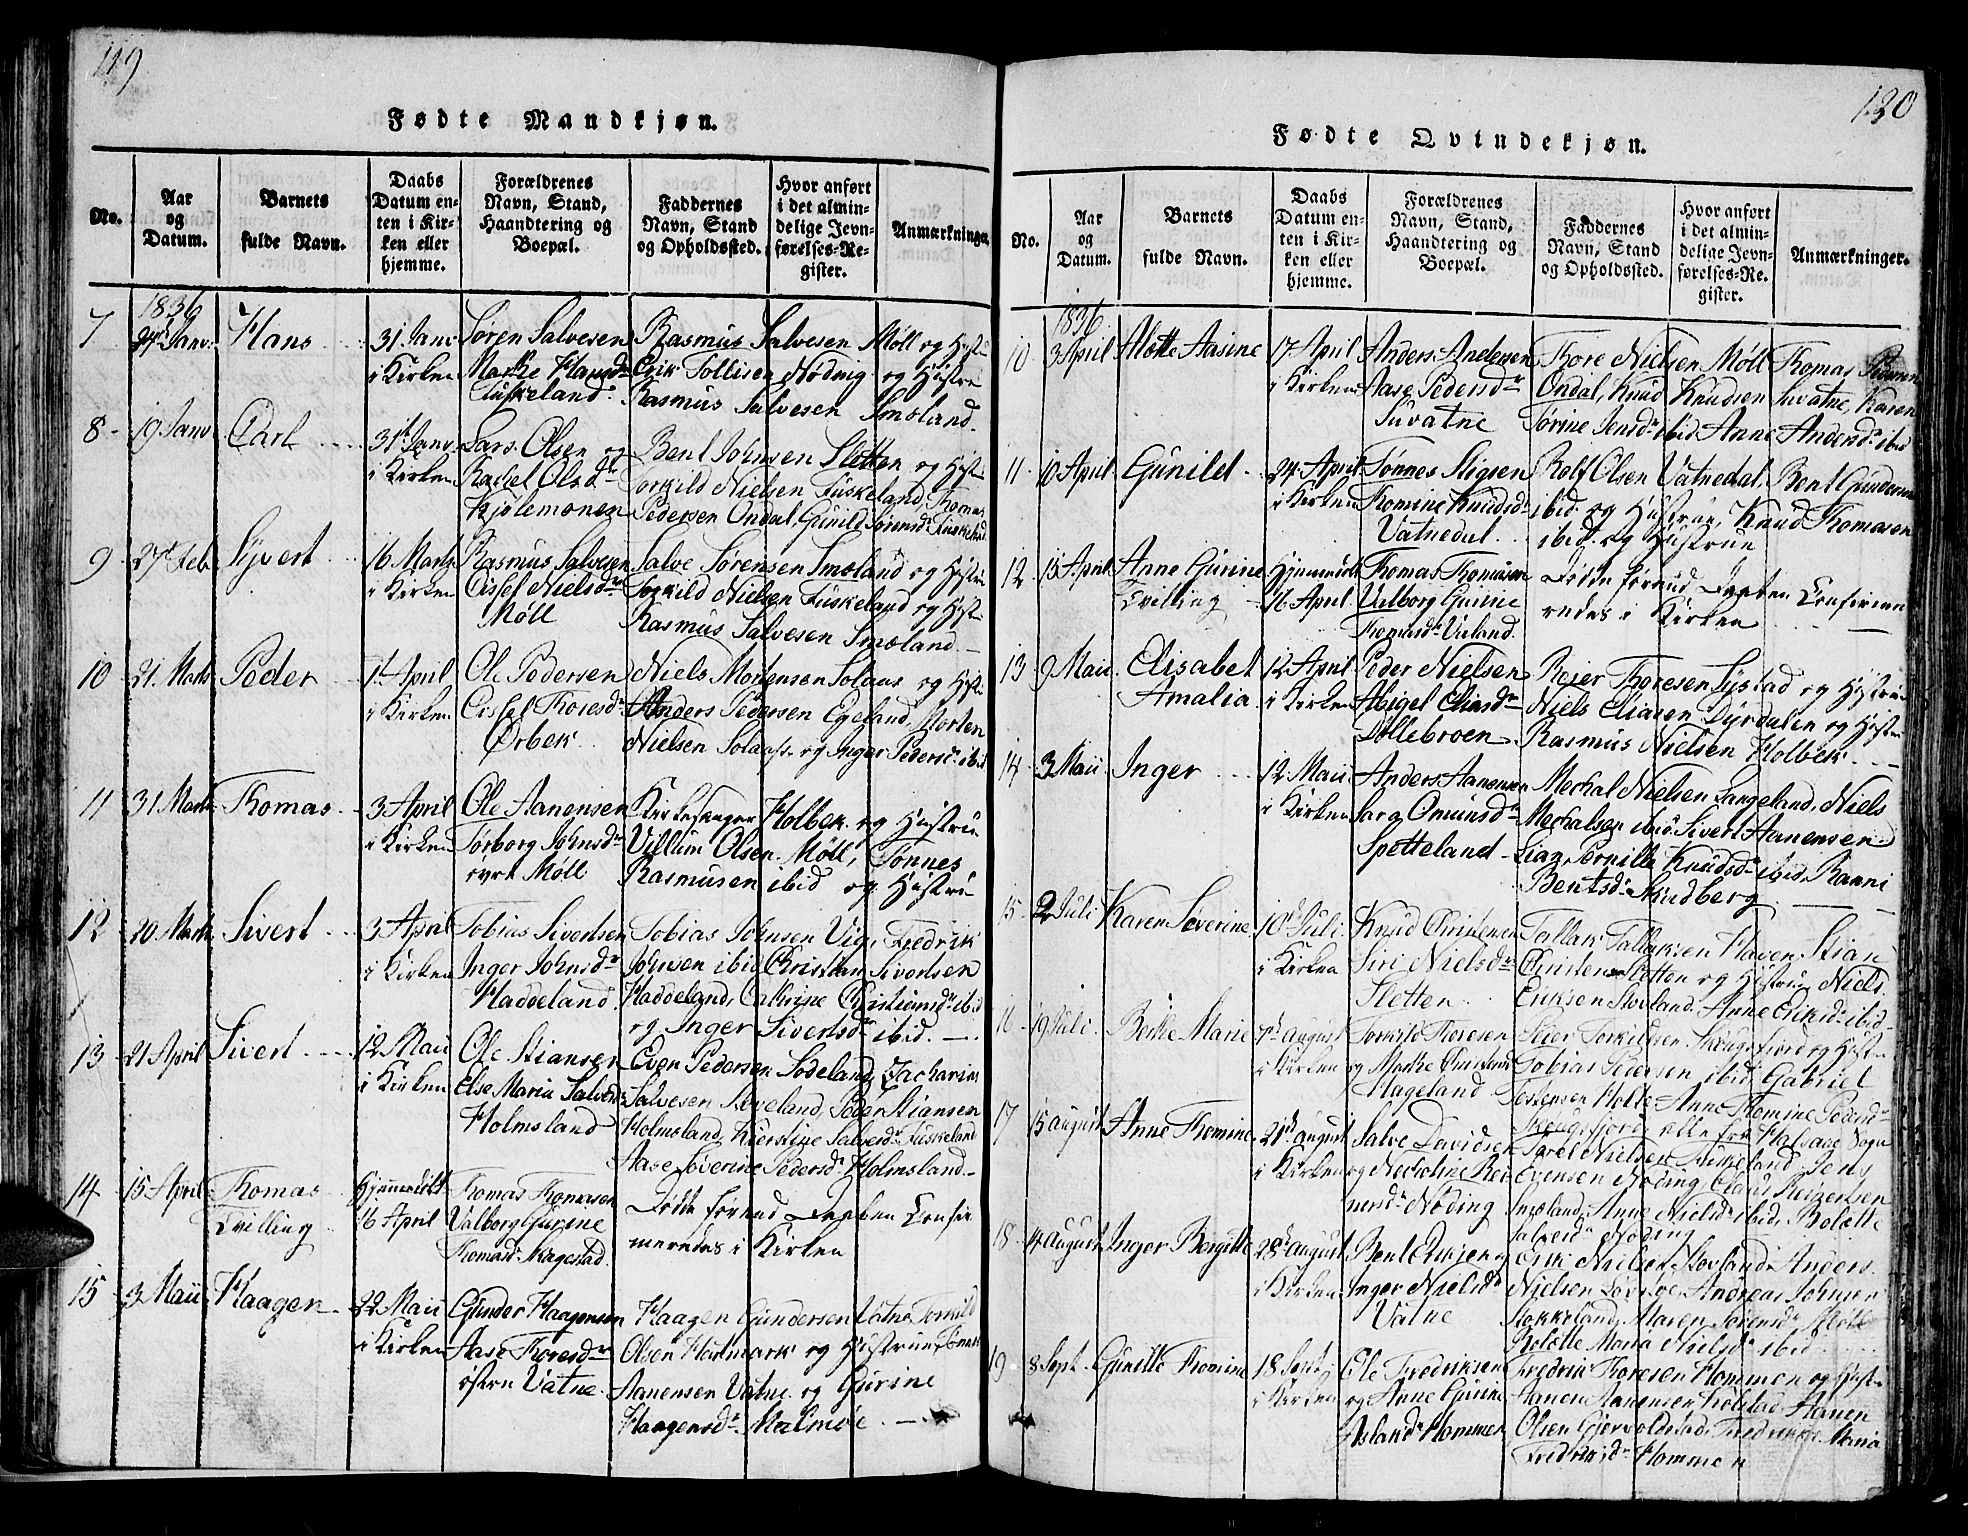 119
Fødte Mandkjøn.
No.
Aar og Datum.
Barnets fulde Navn.
Daabs Datum enten i Kirken eller hjemme.
Forældrenes Navn, Stand, Haandtering og Boepæl.
Faddernes Navn, Stand og Opholdssted.
Hvor anført i det almindelige Jevnførelses-Register.
Anmærkninger.
1836
7 24d Janv. Hans 31 Janv i Kirken
Søren Salvesen
Marthe Haagensdr
Fuskeland
Rasmus Salvesen Møll og Hustrue
Erik Tollisen Nøding og Hustrue
Rasmus Salvesen Smeland.
8 19 Janv Carl 31t Janv. i Kirken
Lars Olsen og
Rachel Olsdr
Kjølemonen
Bent Johnsen Sletten og Hust:
Torkild Nielsen Fuskeland, Thomas
Pedersen Ondal, Gunild Sørensdr Fuskeland
9 27t Feb. Syvert 16 Marts i Kirken
Rasmus Salvesen
Cissel Nielsdr
Møll
Salve Sørensen Smeland og Hustrue
Torkild Nielsen Fuskeland og Hust:
Rasmus Salvesen Smeland.
10 21. Marts Peder 1t April i Kirken
Ole Pedersen
Cissel Thoresdr
Ørbek
Niels Mortensen Solaas og Hust:
Anders Pedersen Egeland, Morten
Nielsen Solaas og Inger Pedersdr ibid
11 31 Marts Thomas 3 April i Kirken
Ole Aanensen
Torborg Johnsdr
øvre Møll
Kirkesanger Holbek og Hustrue
Villum Olsen Møll, Tønnes
Rasmusen ibid og Hustrue
12 20 Marts Sivert 3 April i Kirken
Tobias Sivertsen
Inger Johnsdr
Haddeland
Tobias Johnsen Vig, Fredrik
Johnsen ibid Christian Sivertsen
Haddeland, Cathrine Christiansdr ibid
og Inger Sivertsdr ibid.
13 21 April Sivert 12 Maii i Kirken
Ole Stiansen
Else Maria Salvesdr
Holmsland
Even Pedersen Sodeland, Zacharias
Salvesen Søveland, Peder Stiansen
Holmsland, Kierstine Salvesdr Fuskeland
Aase Severine Pedersdr Holmsland
14 15 April Thomas Tvilling Hjemmedøbt 16 April
Thomas Thomasen
Valborg Gurine
Thomasdr Skagestad
Døde forend Daaben Confir
meredes i Kirken
15 3 Maii Haagen 22 Maii i Kirken
Gunder Haagensen
Aase Thoresdr
østre Vatne
Haagen Gundersen Vatne Torkild
Olsen Holmark og Hustrue, Tønnes
Aanensen Vatne og Gurine
Haagensdr Malmøe
120
Fødte Qvindekjøn.
No.
Aar og Datum.
Barnets fulde Navn.
Daabs Datum enten i Kirken eller hjemme.
Forældrenes Navn, Stand, Haandtering og Boepæl.
Faddernes Navn, Stand og Opholdssted.
Hvor anført i det almindelige Jevnførelses-Register.
Anmærkninger.
1836
10 3 April Alette Aasine 17 April i Kirken
Anders Andersen
Aase Pedersdr
Suvatne
Thore Nielsen Møll Thomas Pedersen
Ondal, Knud Knudsen Suvatne, Karen
Tørine Jensdr ibid Anne Andersdr ibid
11 10 April Gunild 24 April i Kirken
Tønnes Stigsen
Thomine Knudsdr
Vatnedal
Rolf Olsen Vatnedal, Bent Gundersen
ibid og Hustrue, Knud Thomasen
ibid og Hustrue
12 15 April Anne Gurine Tvilling Hjemmedøbt 16 April
Thomas Thomasen
Valborg Gurine
Thomasdr
Døde forend Daaben Confirme
redes i Kirken
13 9 Maii Elisabet Amalia 12 April i Kirken
Peder Nielsen
Abigel Eliasdr
Dollebroen
Reier Thoresen Systad og Hustrue
Niels Eliasen Dyrdalen og Hustrue
Rasmus Nielsen Holbek
14 3 Maii Inger 12 Maii i Kirken
Anders Aanensen
Sara Omunsdr
Spetteland
Mechal Nielsen Langeland, Niels
Mechalsen ibid. Sivert Aanensen
Lian, Pernille Knudsdr ibid. Ranni
Bentsdr Skindberg
15 2 Juli Karen Severine 10d Juli i Kirken
Knud Christensen
Siri Nielsdr
Sletten
Tallak Tallaksen Haven, Stian
Christensen Sletten og Hustrue, Niels
Eriksen Stovland, Anne Eriksdr ibid
16 19 Juli Berthe Marie 7d August i Kirken
Torkild Thoresen
og Marthe
Hageland
Peder Torkildsen Skougsfjord og Hust
Tobias Pedersen ibid, Gabriel
Testensen Holte, Anne Thomine Pedersdr
Skougsfjord, alle fra Halsaae Sogn
17 15 August Anne Thomine 21d August i Kirken
Salve Davidsen
og Nicholine Rei
nersdr Nøding
Tarel Nielsen Fuskeland, Jens
Evensen Nøding, Reiersen
Smeland, Anne Nielsdr ibid, Bolette
Salvesdr Nøding
18 14 August Inger Bergitte 28d August i Kirken
Bent Eriksen og
Inger Nielsdr
Vatne
Erik Nielsen Stovland Anders
Nielsen Andreas Johnsen
Stokkeland, Maren Sørensdr
Bolette Maria Nielsdr ibid
19 8 Sept. Gunilde Thomine 18 Sept. i Kirken
Ole Fredriksen
og Anne Gurine
Aslandr Hommen
Fredrik Thoresen Hommen og Hust
Aanen Aanensen Trølstad, Aanen
Olsen Gjervoldstad, Fredrikke Maria
Fredriksdr Hommen